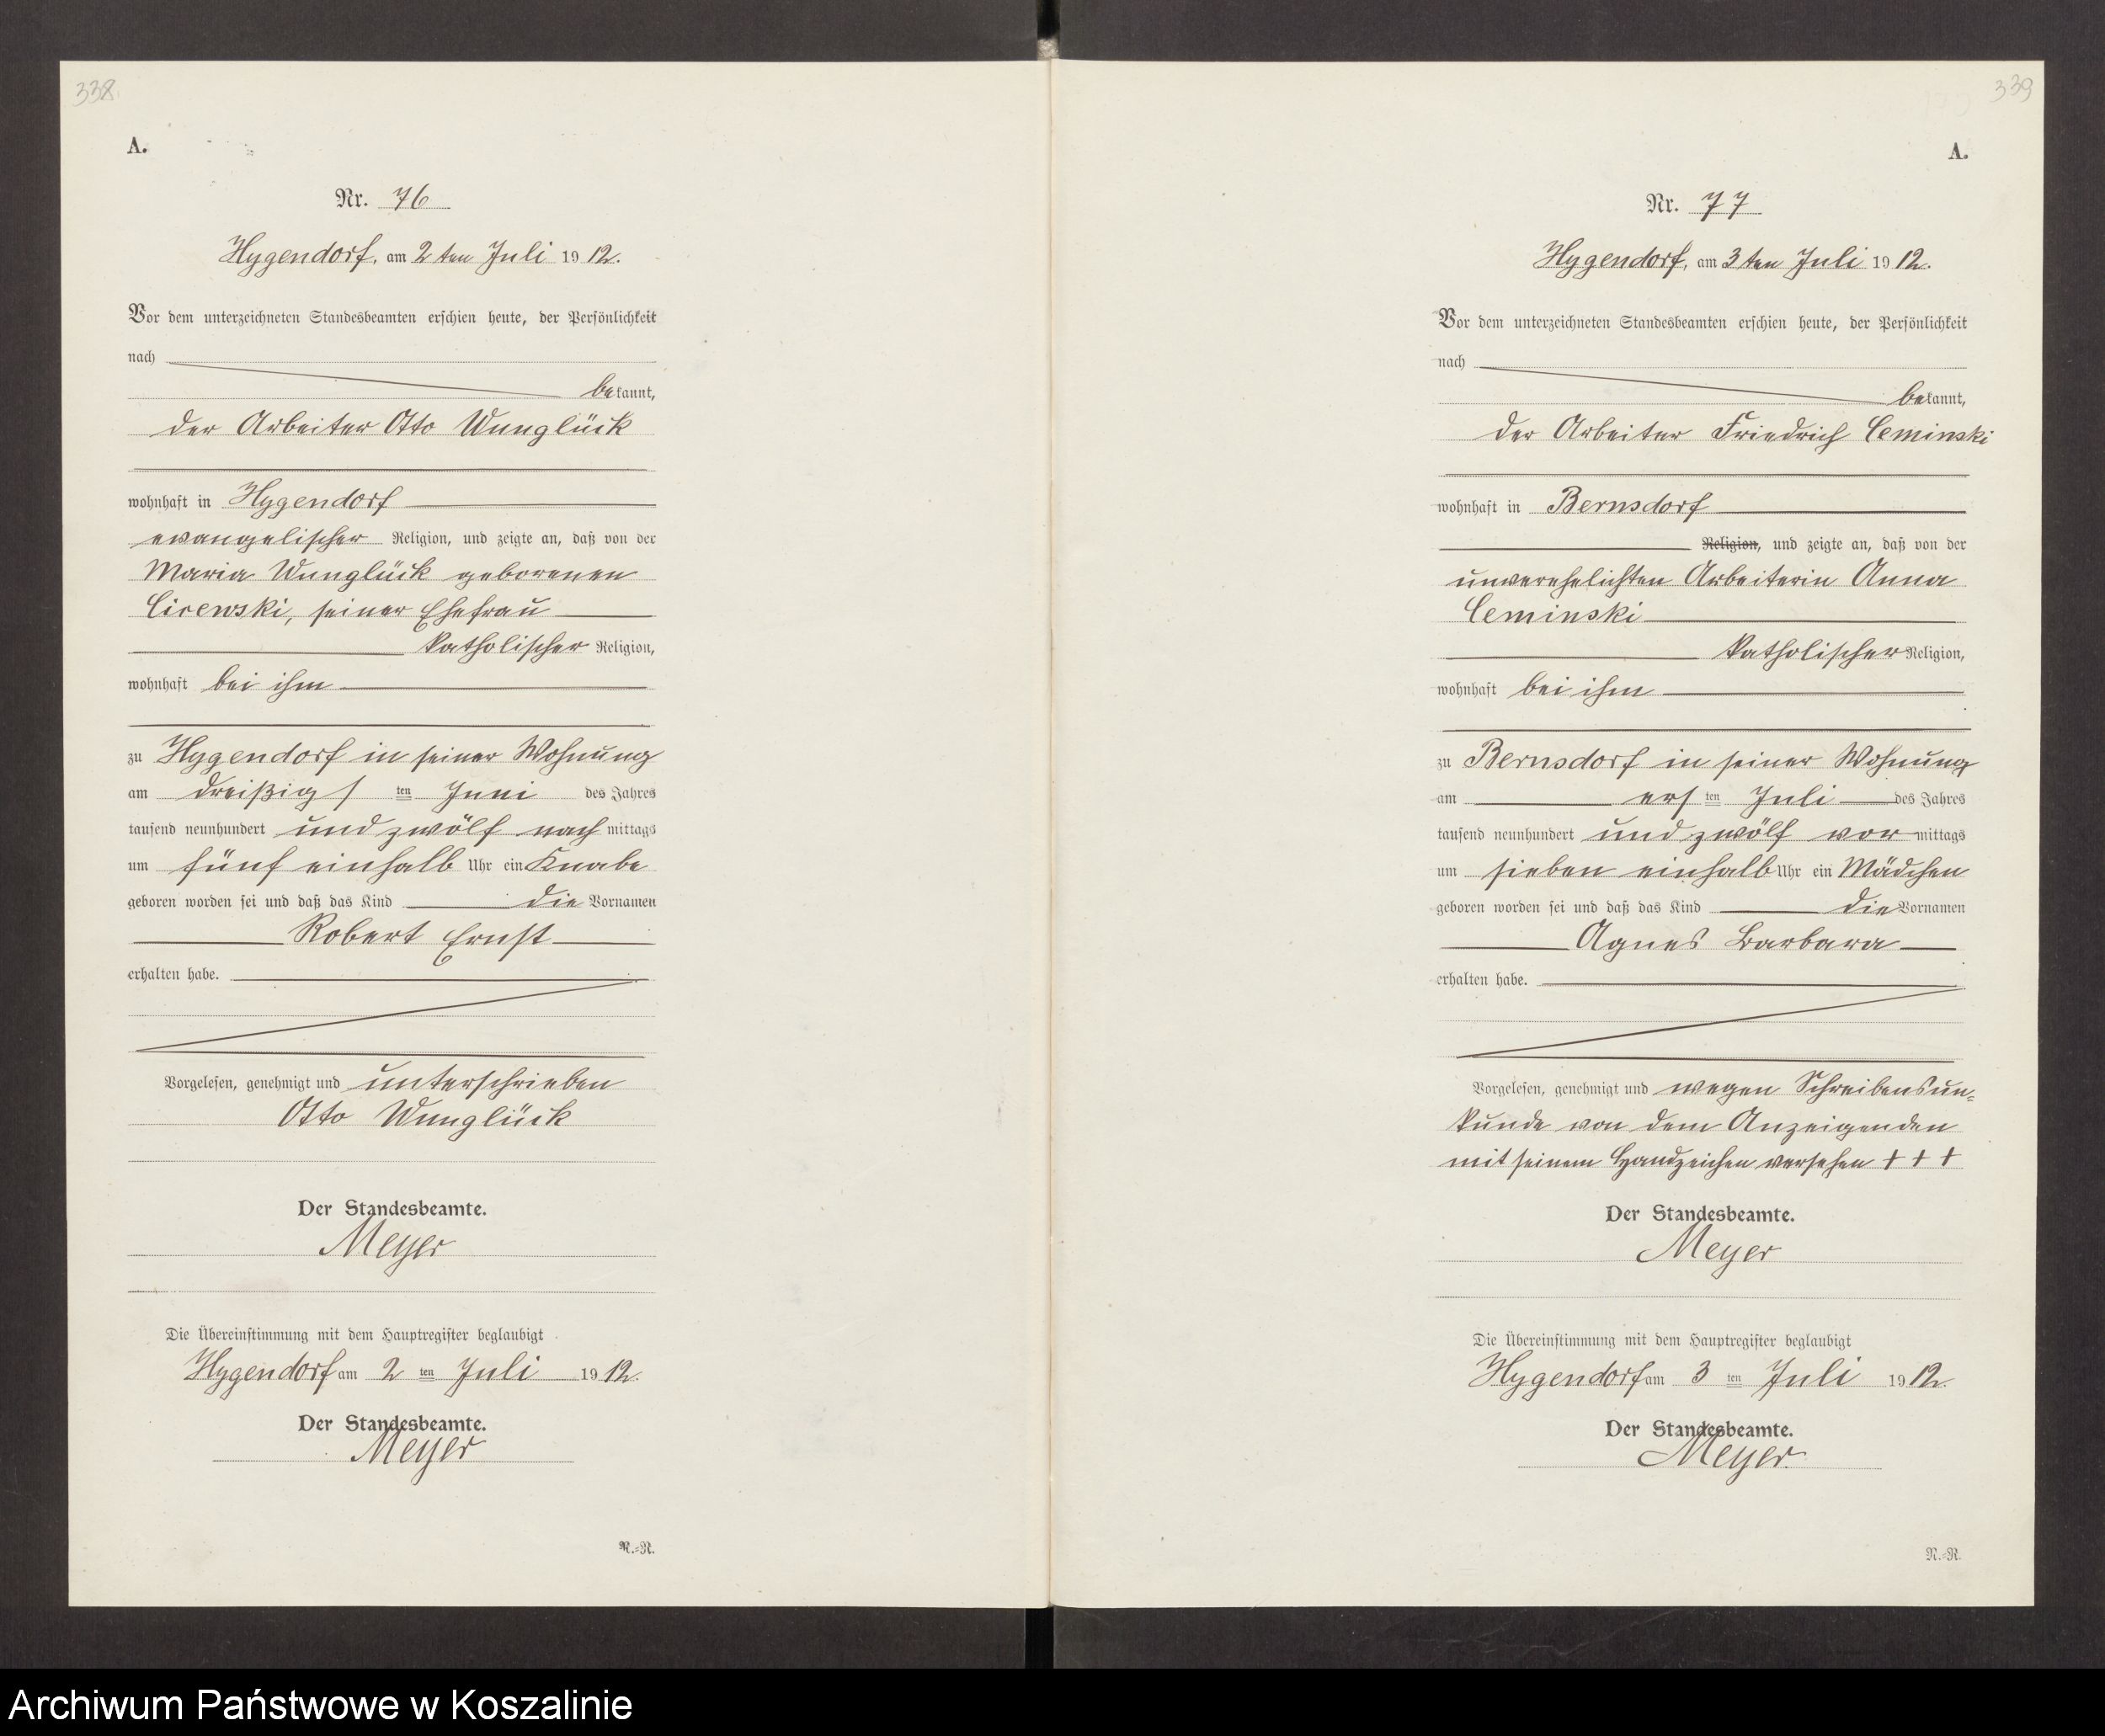 338
A.
Nr. 76
Hygendorf, am 2 ten Juli 1912.
Vor dem unterzeichneten Standesbeamten erschien heute, der Persönlichkeit
nach
bekannt,
der Arbeiter Otto Wunglück
wohnhaft in Hygendorf
evangelischer Religion, und zeigte an, daß von der
Maria Wunglück geborenen
Cirewski, seiner Ehefrau
katholischer Religion,
wohnhaft bei ihm
zu Hygendorf in seiner Wohnung
am dreißigsten Juni des Jahres
tausend neunhundert und zwölf nachmittags
um fünf einhalb Uhr ein Knabe
geboren worden sei und daß das Kind die Vornamen
Robert Ernst
erhalten habe.
Vorgelesen, genehmigt und unterschrieben
Otto Wunglück
Der Standesbeamte.
Meyer
Die Übereinstimmung mit dem Hauptregister beglaubigt
Hygendorf am 2 ten Juli 1912.
Der Standesbeamte.
Meyer
R.-R.
339
A.
Nr. 77
Hygendorf, am 3 ten Juli 1912.
Vor dem unterzeichneten Standesbeamten erschien heute, der Persönlichkeit
nach
bekannt,
der Arbeiter Friedrich Ceminski
wohnhaft in Bernsdorf
Religion, und zeigte an, daß von der
unverehelichten Arbeiterin Anna
Ceminski
katholischer Religion,
wohnhaft bei ihm
zu Bernsdorf in seiner Wohnung
am ersten Juli des Jahres
tausend neunhundert und zwölf vormittags
um sieben einhalb Uhr ein Mädchen
geboren worden sei und daß das Kind die Vornamen
Agnes Barbara
erhalten habe.
Vorgelesen, genehmigt und wegen Schreibensun-
kunde von dem Anzeigenden
mit seinem Handzeichen versehen + + +
Der Standesbeamte.
Meyer
Die Übereinstimmung mit dem Hauptregister beglaubigt
Hygendorf am 3 ten Juli 1912.
Der Standesbeamte.
Meyer.
R.-R.
Archiwum Państwowe w Koszalinie